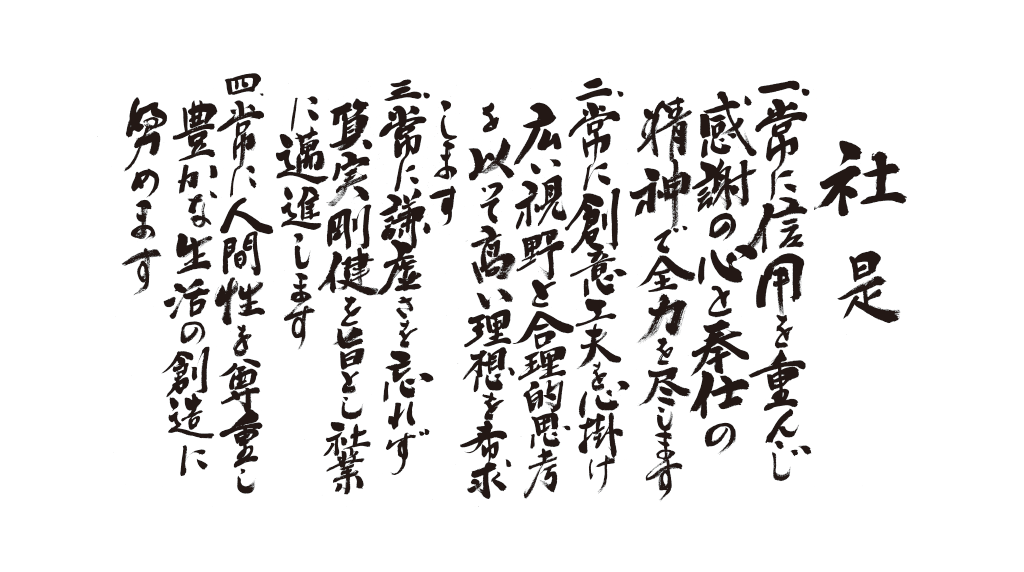 社是
一、常に信用を重んじ
感謝の心と奉仕の
精神で全力を尽します
二、常に創意工夫を心掛け
広い視野と合理的思考
を以て高い理想を希求
します
三、常に謙虚さを忘れず
質実剛健を旨とし社業
に邁進します
四、常に人間性を尊重し
豊かな生活の創造に
努めます